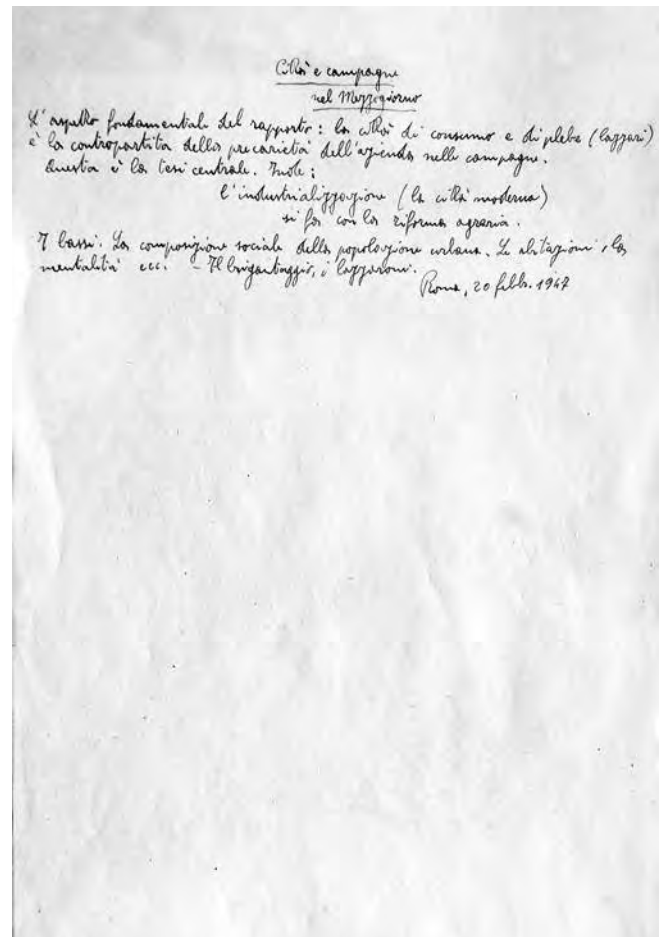 Città e campagne
nel Mezzogiorno
L'aspetto fondamentale del rapporto: la città di consumo e di plebe (lazzari)
è la contropartita della precarietà dell'azienda nelle campagne.
Questa è la tesi centrale. Inoltre:
l'industrializzazione (la città moderna)
si fa con la riforma agraria.
I bassi. La composizione sociale della popolazione urbana. Le abitazioni, la
mentalità ecc. – Il brigantaggio, i lazzaroni.
Roma, 20 febbr. 1947